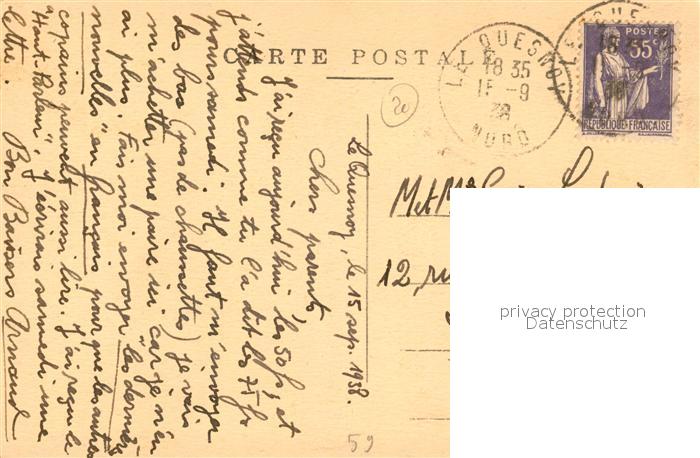 CARTE POSTALE
LE QUESNOY
18 35
15 -9
38
NORD
POSTES
55c
RÉPUBLIQUE FRANÇAISE
20
Le Quesnoy, le 15 sep. 1938.
Chers parents,
J'ai reçu aujourd'hui les 50 frs, et
j'attends comme tu l'a dit les 75 frs
pour samedi. Il faut m'envoyer
des bas (pas de chaussettes) je vais
m'acheter une paire ici car je n'en
ai plus. Fais moi envoyer "les dernières
nouvelles" en français pour que les autres
copains peuvent aussi lire. J'ai reçu le
"Haut-Parleur". J'écrirais samedi une
lettre. Bon Baisers Arnaud
M et Me
12, ru
59
privacy protection
Datenschutz